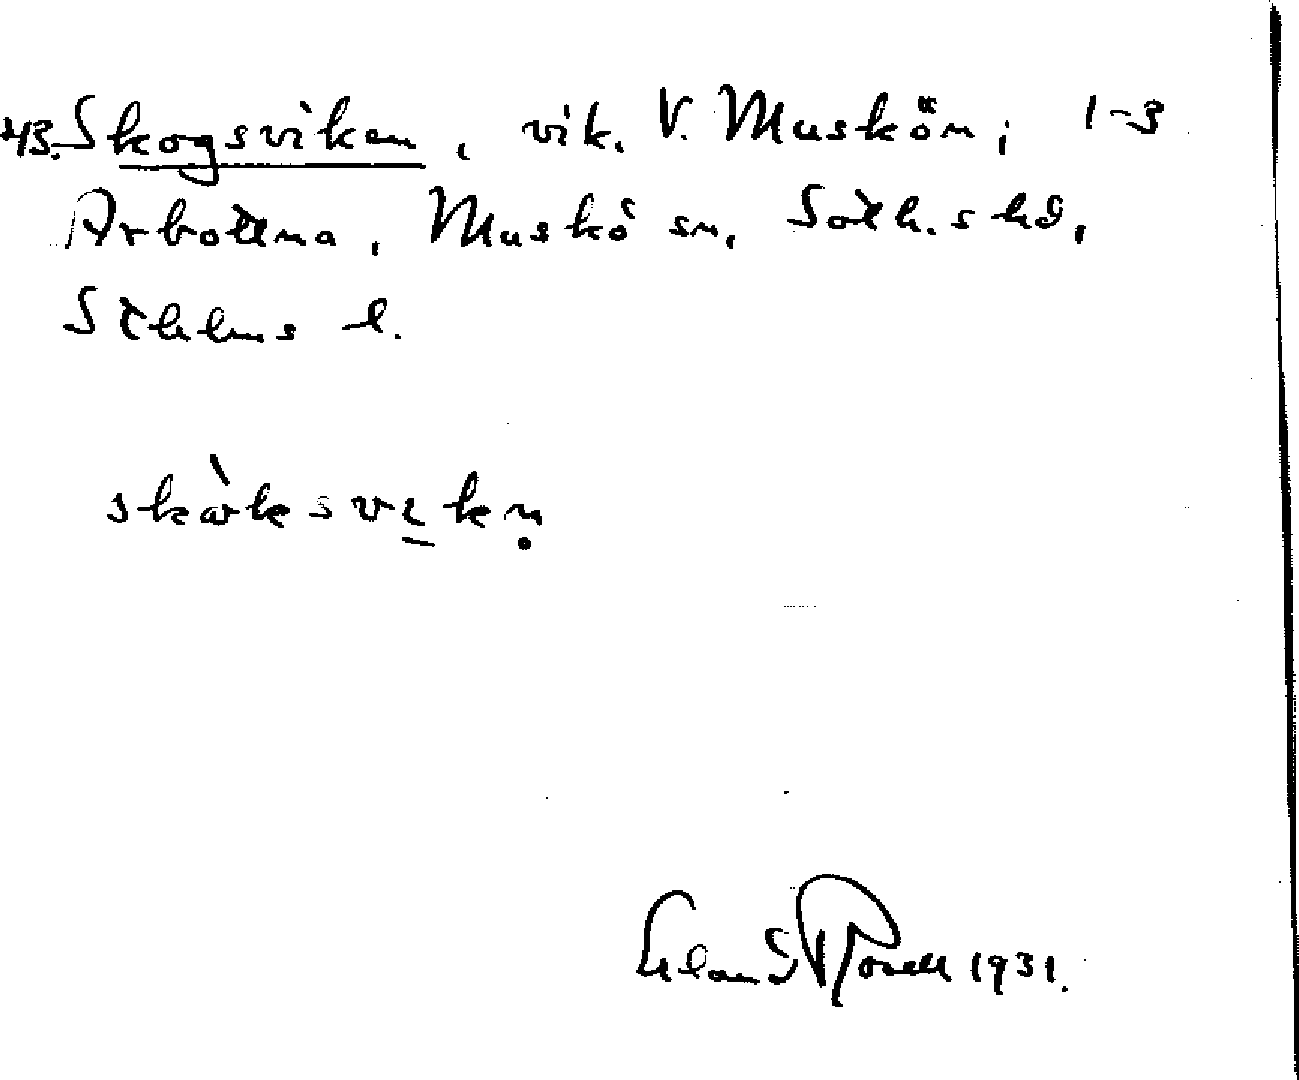 43. Skogsviken, vik. V. Muskön; 1-3
Arbottna, Muskö sn, Soth.s hd,
Sthlms l.
skὼksvikn̥
1931.